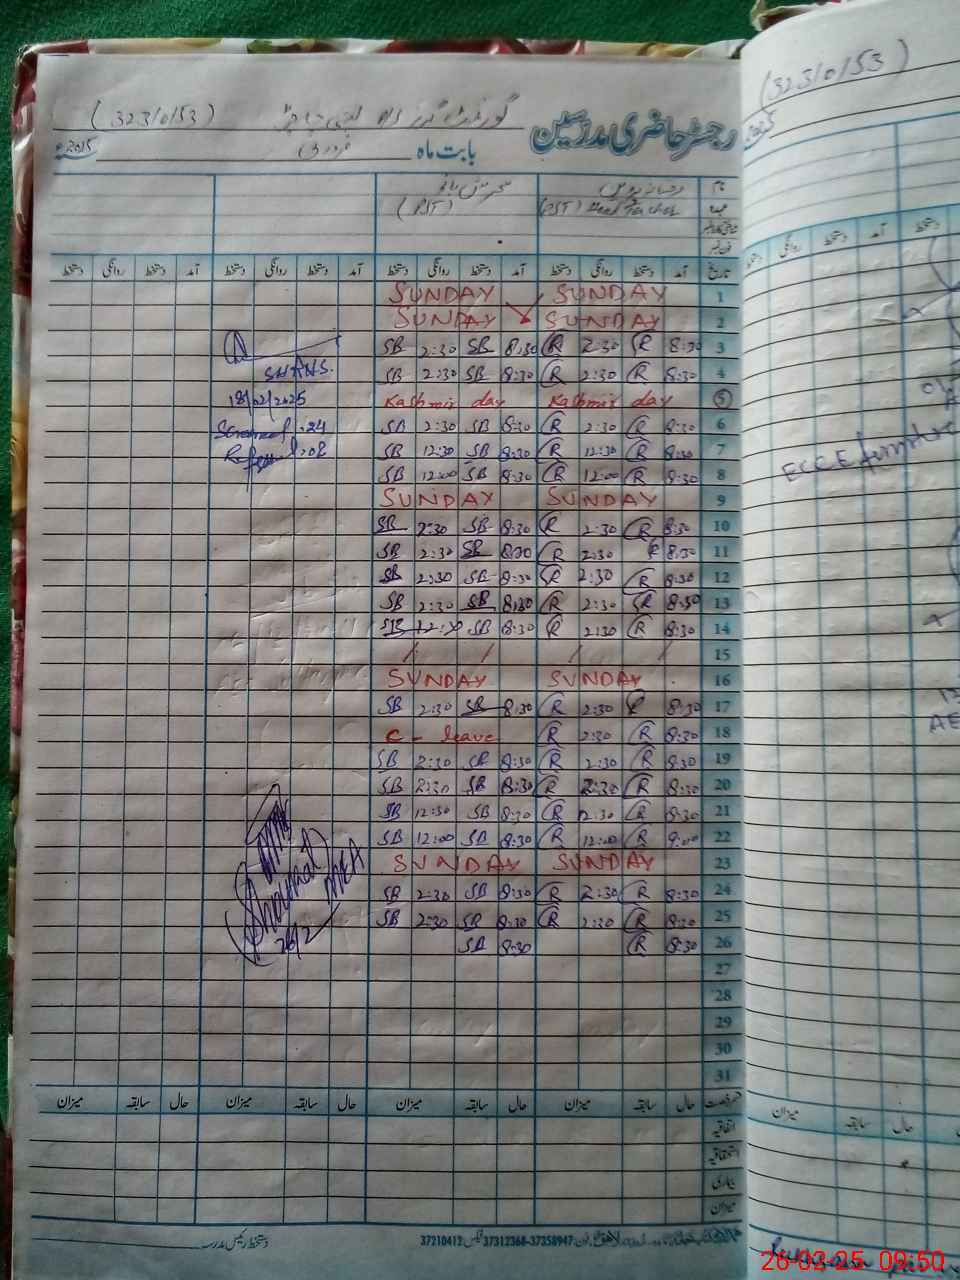 (32310153)
رجسٹر حاضری مدرسین
گورنمنٹ گرلز
بابت ماہ فروری 2025ء
نام
عہدہ
(PST) Head Teacher (PST)
فون نمبر
تاریخ آمد دستخط روانگی دستخط آمد دستخط روانگی دستخط آمد دستخط روانگی دستخط آمد دستخط روانگی دستخط
SUNDAY SUNDAY 1
SUNDAY SUNDAY 2
SB 2:30 SB 8:30 R 2:30 R 8:30 3
SB 2:30 SB 8:30 R 2:30 R 8:30 4
Kashmir day Kashmir day 5
SB 2:30 SB 8:30 R 2:30 R 8:30 6
SB 12:30 SB 8:30 R 12:30 R 8:30 7
SB 12:00 SB 8:30 R 12:00 R 8:30 8
SUNDAY SUNDAY 9
SB 2:30 SB 8:30 R 2:30 R 8:30 10
SB 2:30 SB 8:30 R 2:30 R 8:30 11
SB 2:30 SB 8:30 R 2:30 R 8:30 12
SB 2:30 SB 8:30 R 2:30 R 8:30 13
SB 12:30 SB 8:30 R 2:30 R 8:30 14
15
SUNDAY SUNDAY 16
SB 2:30 SB 8:30 R 2:30 R 8:30 17
C - leave R 2:30 R 8:30 18
SB 2:30 SB 8:30 R 2:30 R 8:30 19
SB 2:30 SB 8:30 R 2:30 R 8:30 20
SB 12:30 SB 8:30 R 12:30 R 8:30 21
SB 12:00 SB 8:30 R 12:00 R 9:00 22
SUNDAY SUNDAY 23
SB 2:30 SB 8:30 R 2:30 R 8:30 24
SB 2:30 SB 8:30 R 2:30 R 8:30 25
SB 8:30 R 8:30 26
27
28
29
30
31
SH&NS.
18/02/2025
Screened .24
Referred .08
(Shoukat)
AEA
26/2
قسم رخصت حال سابقہ میزان حال سابقہ میزان حال سابقہ میزان حال سابقہ میزان
اتفاقیہ
استحقاقیہ
بیماری
میزان
دستخط رئیس مدرسہ
37210412 فیکس: 37312368-37358947 فون:
(32310153)
دستخط روانگی دستخط آمد دستخط
ECCE furniture
میزان سابقہ حال
26-02-25 09:50